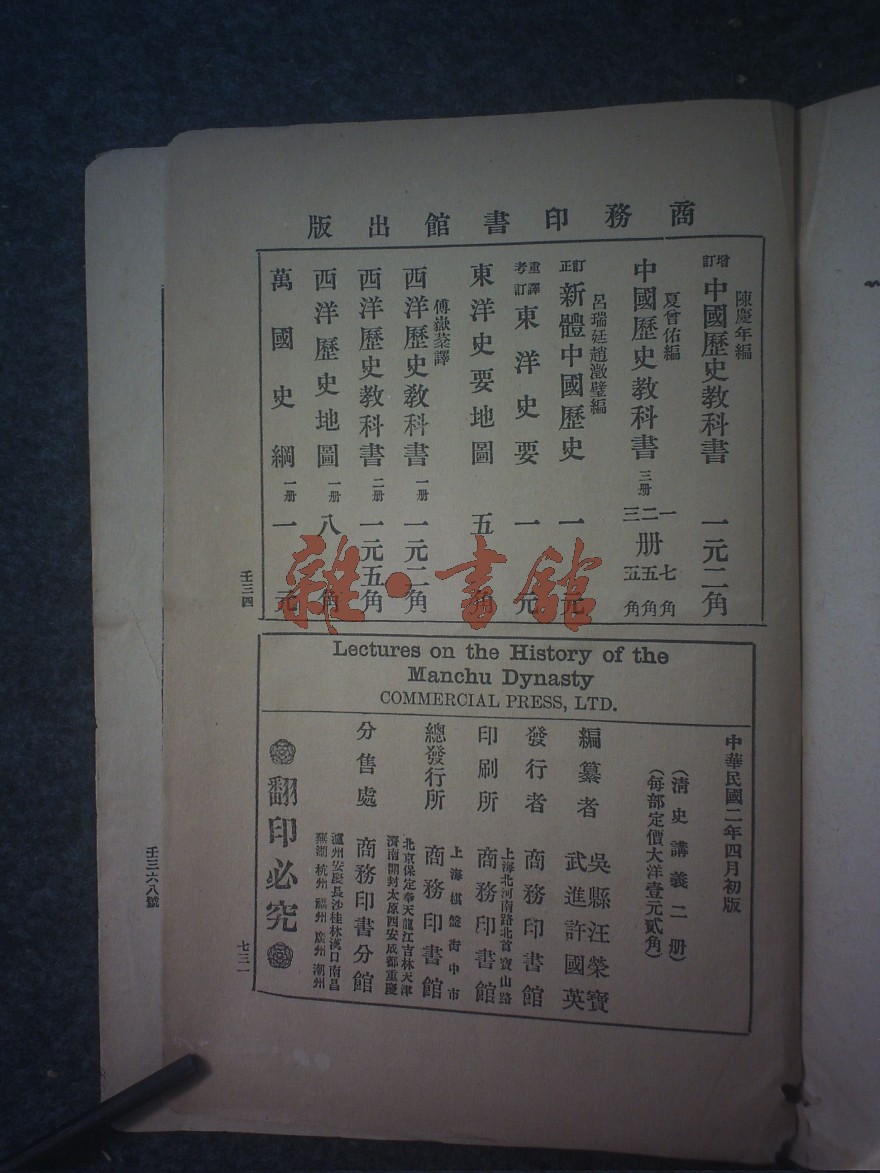 商務印書館出版
陳慶年編
增訂中國歷史教科書 一元二角
夏曾佑編
中國歷史教科書 三册 一二三册 七角 五角 五角
呂瑞廷趙澂璧編
訂正新體中國歷史 一元
重譯考訂東洋史要 一元
東洋史要地圖 五角
傅嶽棻譯
西洋歷史敎科書 一册 一元二角
西洋歷史教科書 二册 一元五角
西洋歷史地圖 一册 八角
萬國史綱 一册 一元
壬三四
雜·書館
Lectures on the History of the
Manchu Dynasty
COMMERCIAL PRESS, LTD.
中華民國二年四月初版
(清史講義二册)
(每部定價大洋壹元貳角)
編纂者 吳縣汪榮寶
武進許國英
發行者 商務印書館
上海北河南路北首寶山路
印刷所 商務印書館
上海棋盤街中市
總發行所 商務印書館
北京保定奉天龍江吉林天津
濟南開封太原西安成都重慶
分售處 商務印書分館
瀘州安慶長沙桂林漢口南昌
蕪湖杭州福州廣州潮州
翻印必究
壬三六八號
七三一